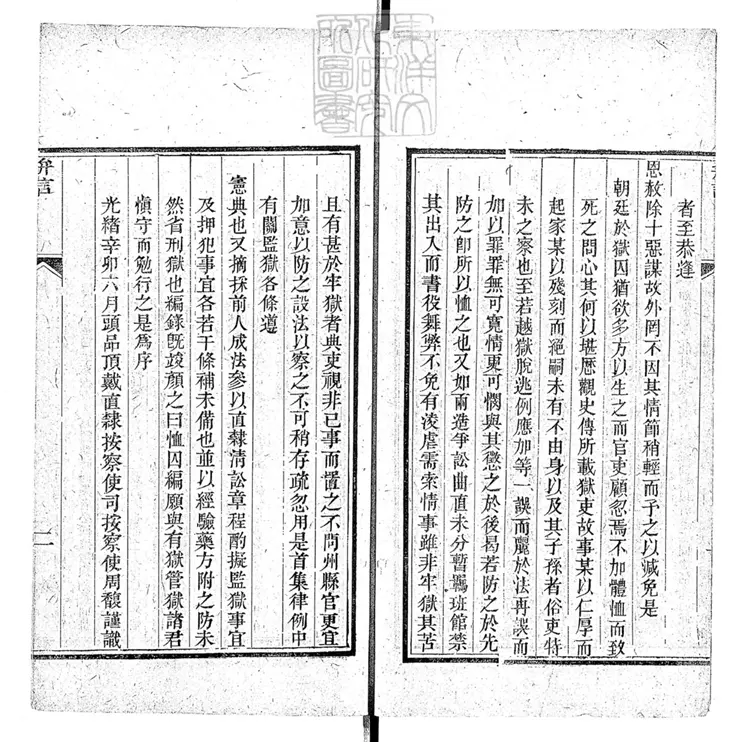 東洋文
化研究
所圖書
者至恭逢
恩赦除十惡謀故外罔不因其情節稍輕而予之以減免是
朝廷於獄囚猶欲多方以生之而官吏顧忍焉不加體恤而致
死之問心其何以堪歷觀史傳所載獄吏故事某以仁厚而
起家某以殘刻而絕嗣未有不由身以及其子孫者俗吏特
未之察也至若越獄脫逃例應加等一誤而麗於法再誤而
加以罪罪無可寬情更可憫與其懲之於後曷若防之於先
防之卽所以恤之也又如兩造爭訟曲直未分暫羈班館禁
其出入而書役舞弊不免有淩虐需索情事雖非牢獄其苦
且有甚於牢獄者典吏視非已事而置之不問州縣官更宜
加意以防之設法以察之不可稍存疏忽用是首集律例中
有關監獄各條遵
憲典也又摘採前人成法參以直隸淸訟章程酌擬監獄事宜
及押犯事宜各若干條補未備也並以經驗藥方附之防未
然省刑獄也編錄旣竣顏之曰恤囚編願與有獄管獄諸君
愼守而勉行之是爲序
光緒辛卯六月頭品頂戴直隸按察使司按察使周馥謹識
弁言
二